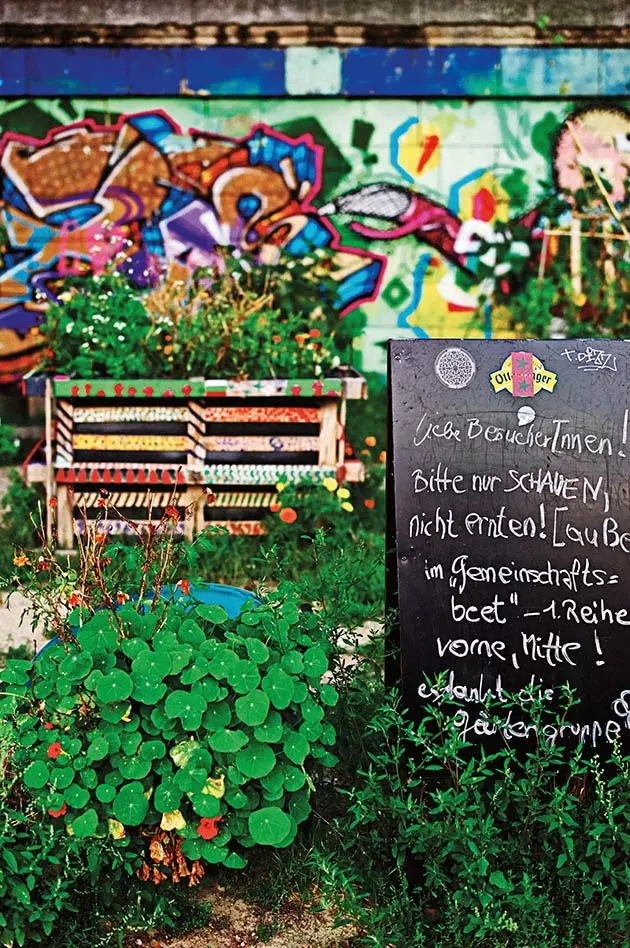 Ottakringer
Liebe BesucherInnen!
Bitte nur SCHAUEN,
nicht ernten! [außer
im „Gemeinschafts=
beet" – 1. Reihe
vorne, Mitte!
es dankt die
Gärtengruppe